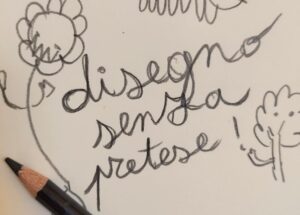 disegno
senza
pretese!